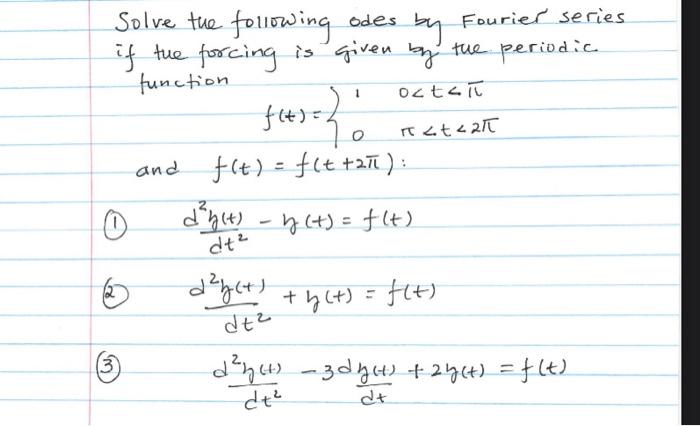 Solve the following odes by Fourier series
if the forcing is given by the periodic
function
f(t) = { 1 0<t<π
0 π<t<2π
and f(t) = f(t+2π):
① d²y(t)/dt² - y(t) = f(t)
② d²y(t)/dt² + y(t) = f(t)
③ d²y(t)/dt² - 3dy(t)/dt + 2y(t) = f(t)